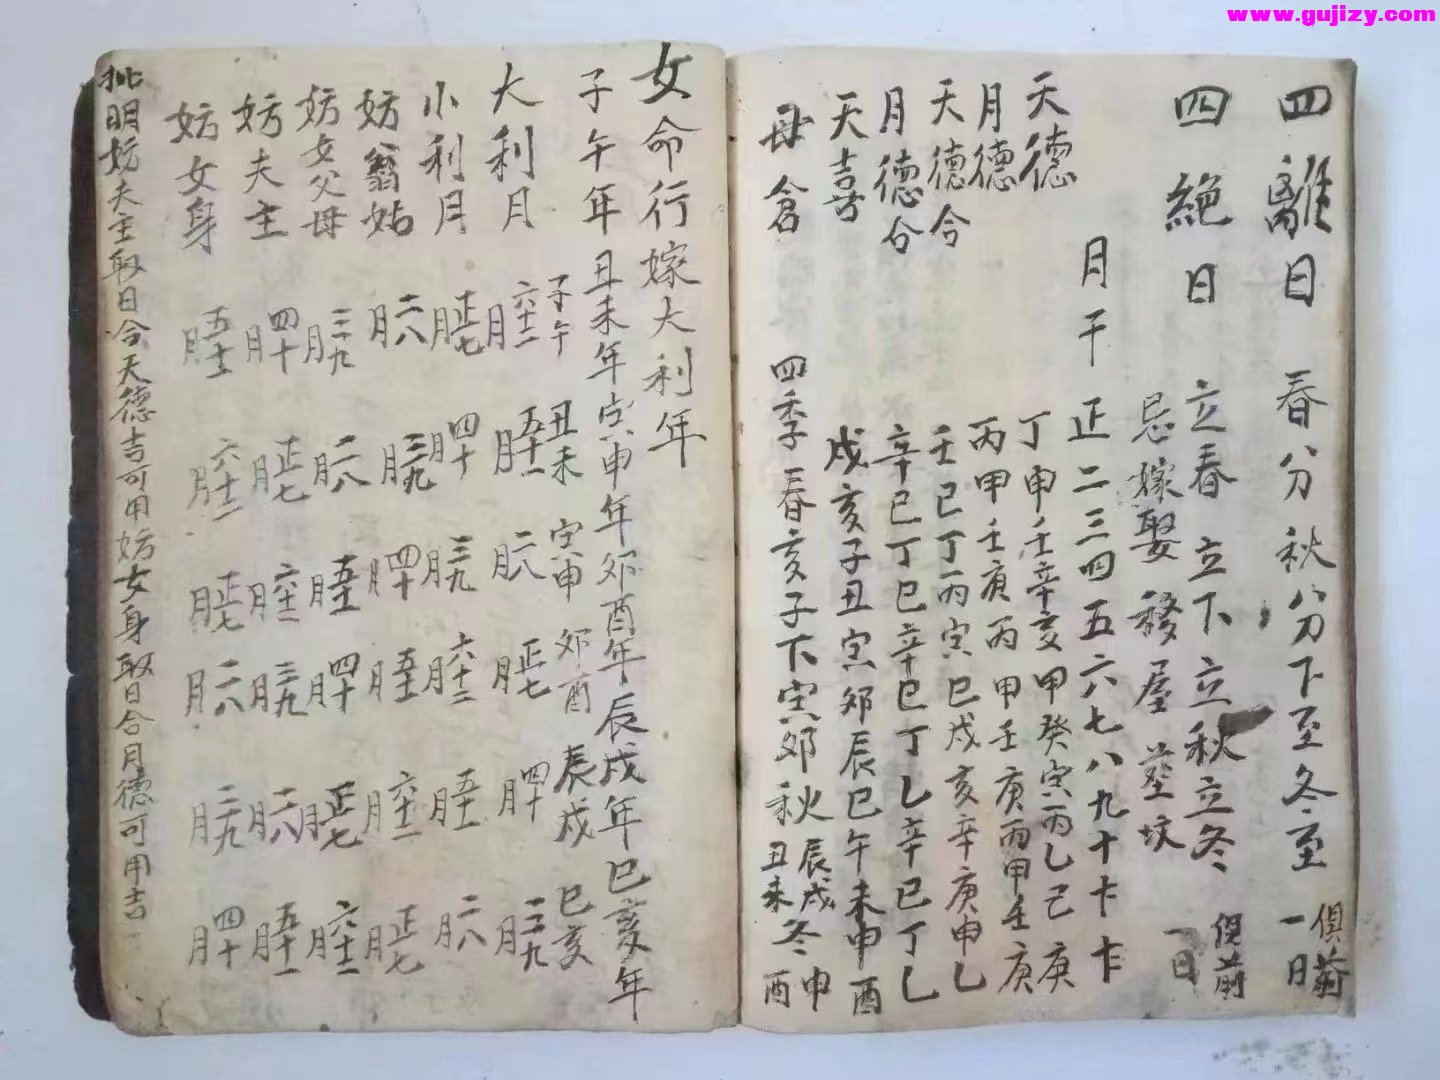 www.gujizy.com
四離日 春分秋分下至冬至 俱前一日
四絕日 立春立下立秋立冬 俱前一日
忌嫁娶移屋葬坟
月干 正二三四五六七八九十十一十二
天德 丁申壬辛亥甲癸寅丙乙己庚
月德 丙甲壬庚丙甲壬庚丙甲壬庚
天德合 壬巳丁丙寅巳戌亥辛庚申乙
月德合 辛巳丁巳辛巳丁乙辛巳丁乙
天喜 戌亥子丑寅夘辰巳午未申酉
母倉 四季春亥子下寅夘秋辰戌丑未冬申酉
女命行嫁大利年
子午年 丑未年 寅申年 夘酉年 辰戌年 巳亥年
子午 丑未 寅申 夘酉 辰戌 巳亥
大利月 六十二月 五十一月 二八月 正七月 四十月 三九月
小利月 正七月 四十月 三九月 六十二月 五十一月 二八月
妨翁姑 二八月 三九月 四十月 五十一月 六十二月 正七月
妨女父母 三九月 二八月 五十一月 四十月 正七月 六十二月
妨夫主 四十月 正七月 六十二月 三九月 二八月 五十一月
妨女身 五十一月 六十二月 正七月 二八月 三九月 四十月
批明妨夫主取日合天德吉可用妨女身取日合月德可用吉